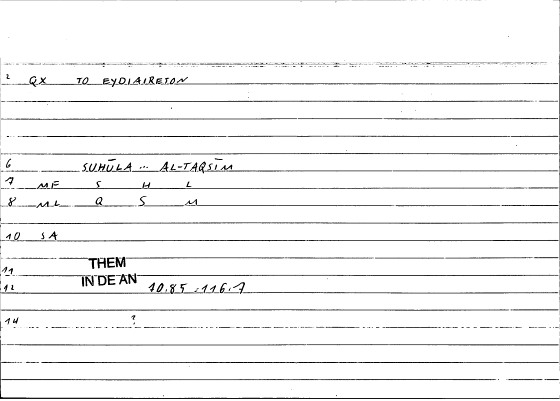 2 QX TO EYDIAIRETON
6 SUHŪLA ... AL-TAQSĪM
7 MF S H L
8 ML Q S M
10 SA
THEM
11
IN DE AN
12 10.85 .116.7
14 ?